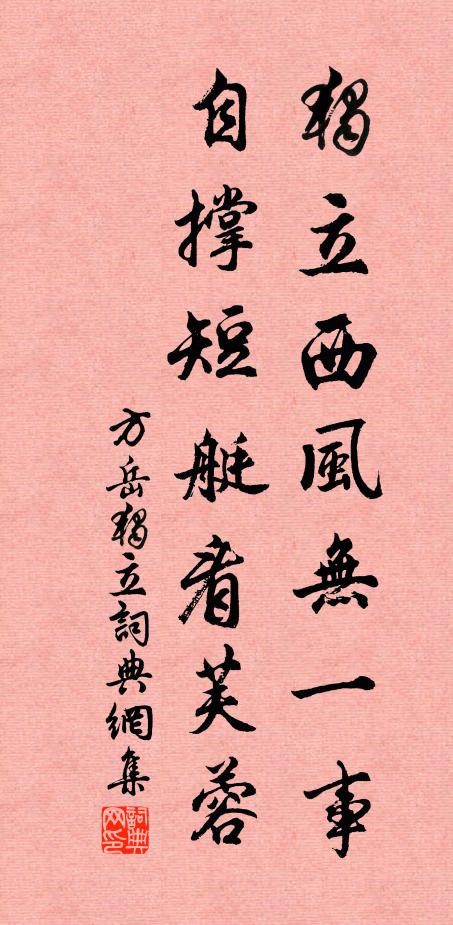 獨立西風無一事
自撑短艇看芙蓉
方岳獨立詞典網集
詞典网印